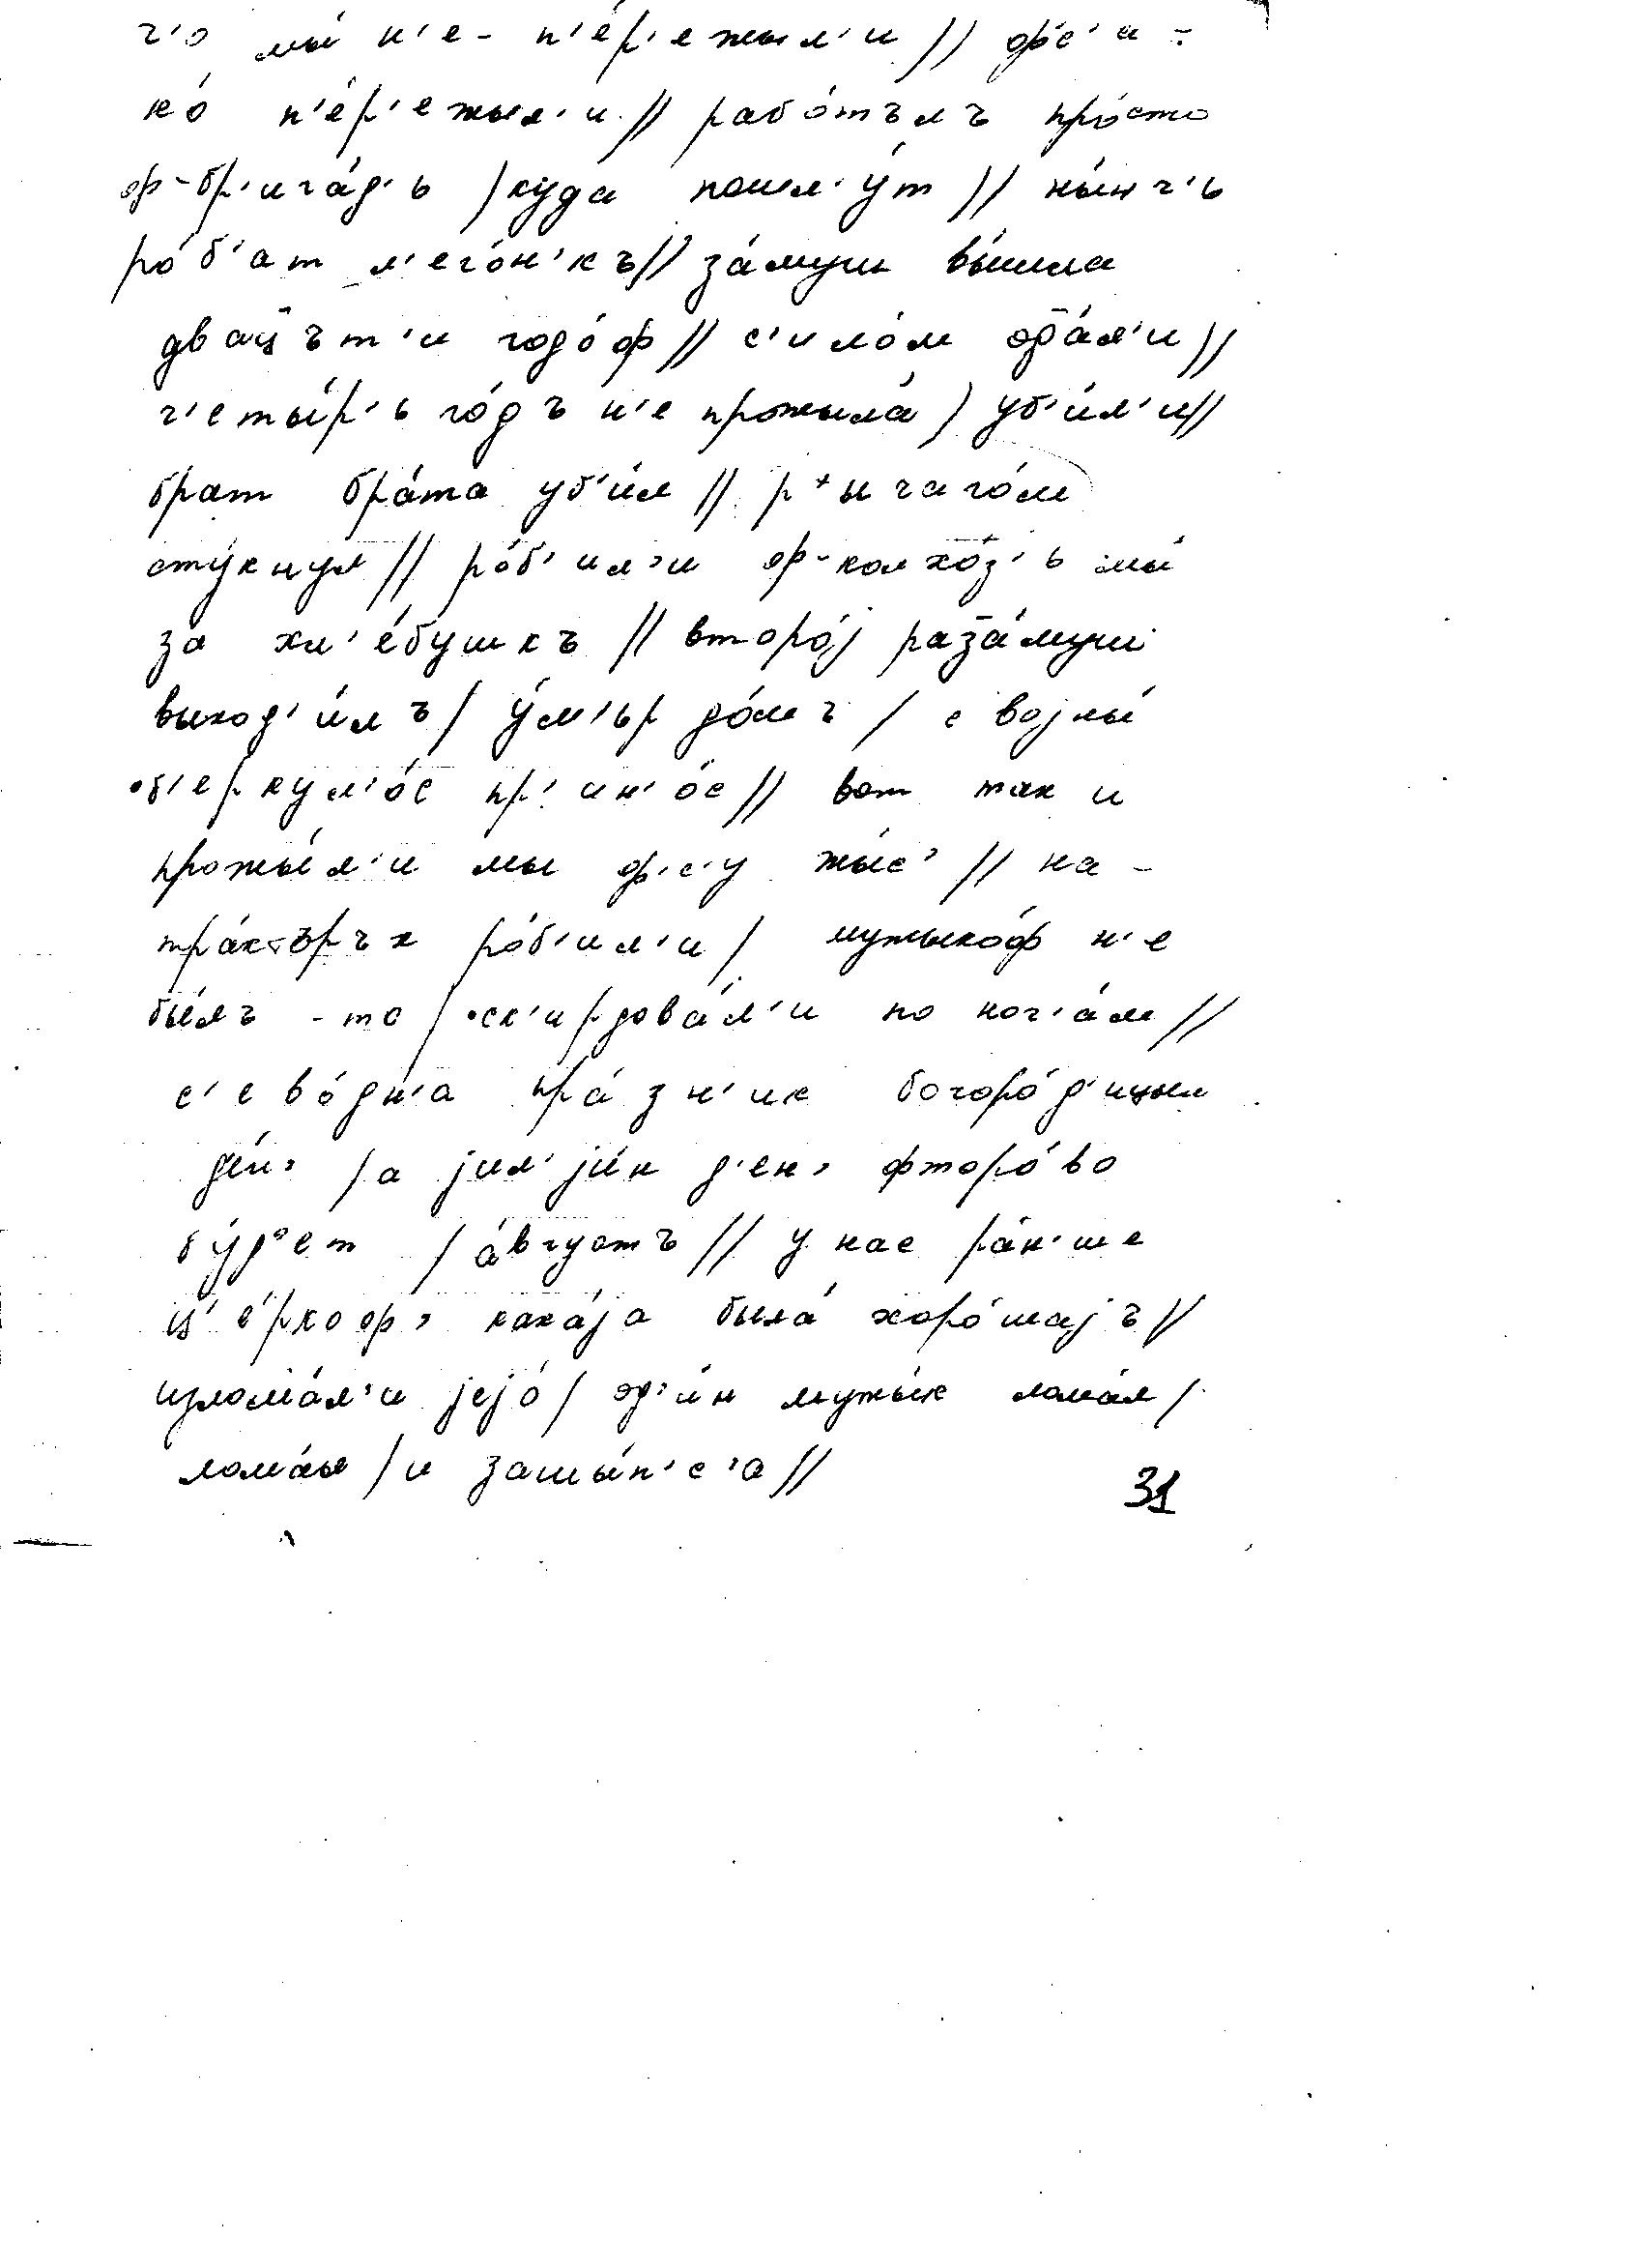 ч'о мы́ н'е- п'е́р'ежыл'и // фс'а-
ко́ п'е́р'ежыл'и // рабо́тълъ про́сто
ф-бр'ига́д'ь / куда пошл'у́т // ны́нч'ь
ро́б'ат л'его́н'къ // за́муш вы́шла
двац̄ът'и годо́ф // с'ило́м од̄а́л'и //
ч'еты́р'ь го́дъ н'е прожыла́ / уб'и́л'и //
брат бра́та уб'и́л // р⁺ычаго́м
сту́кнул // ро́б'ил'и ф-колхо́з'ь мы́
за хл'е́бушкъ // второ́j раз̄а́муш
выход'и́лъ / у́м'ьр до́мъ / с воjны́
•б'еркул'о́с пр'ин'о́с // вот так и
прожы́л'и мы ф'с'у жы́с' // на-
тра́кторъх ро́б'ил'и / мужыко́ф н'е
бы́лъ -то / •ск'ирдова́л'и по ноч'а́м //
с'ево́дн'а пра́зн'ик богоро́д'ицын
д'е́н' / а jил'jи́н д'ен' фторо́во
бу́д'ет / а́вгустъ // у нас ра́н'ше
ц'е́ркоф' кака́jа была́ хоро́шаjъ //
излома́л'и jejо́ / од'и́н мужы́к лома́л /
лома́л / и зашы́п'с'а //
31